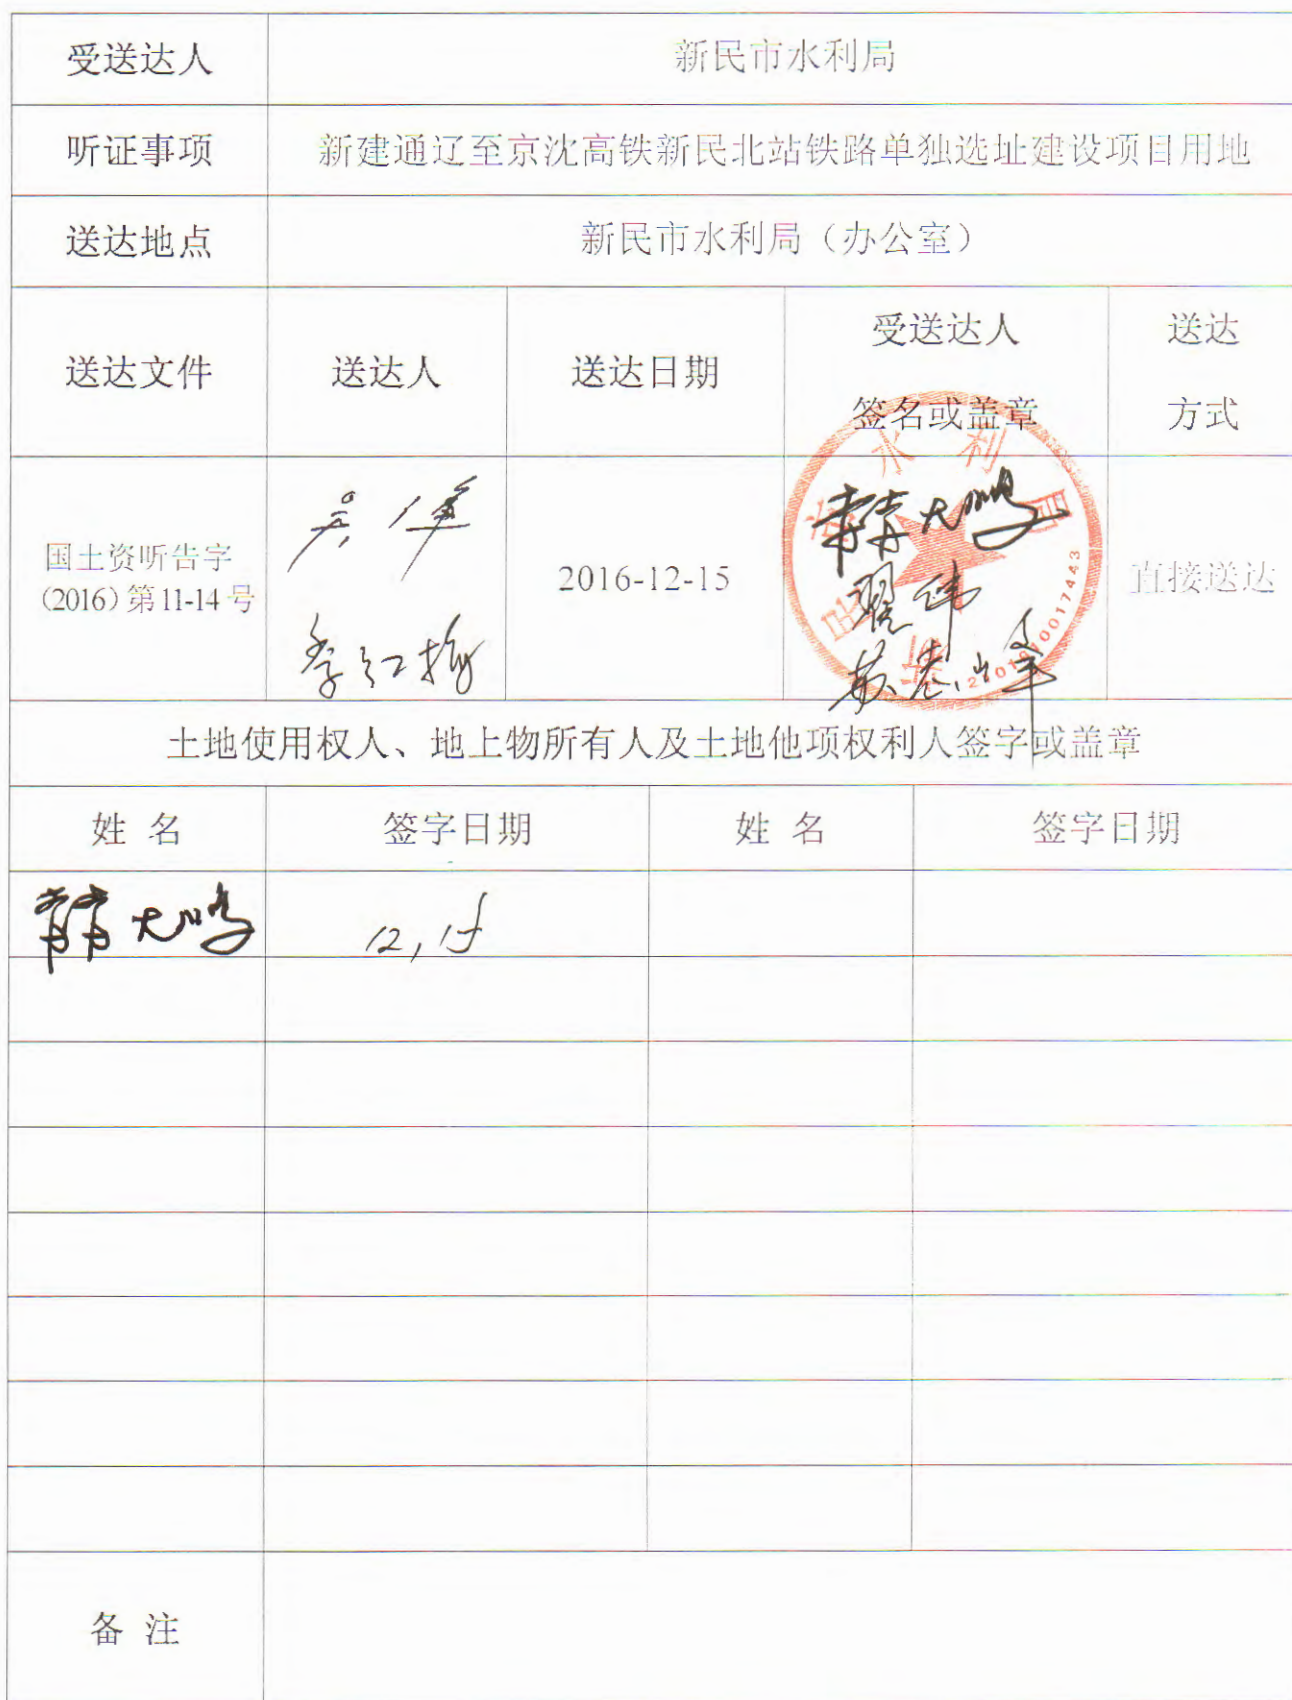 受送达人 新民市水利局
听证事项 新建通辽至京沈高铁新民北站铁路单独选址建设项目用地
送达地点 新民市水利局（办公室）
送达文件 送达人 送达日期 受送达人 签名或盖章 送达 方式
国土资听告字
（2016）第11-14号
吴伟
李红梅
2016-12-15
韩大鹏
翟伟
苏志峰
水利
2101010017443
直接送达
土地使用权人、地上物所有人及土地他项权利人签字或盖章
姓 名 签字日期 姓 名 签字日期
韩大鹏 12,15
备 注